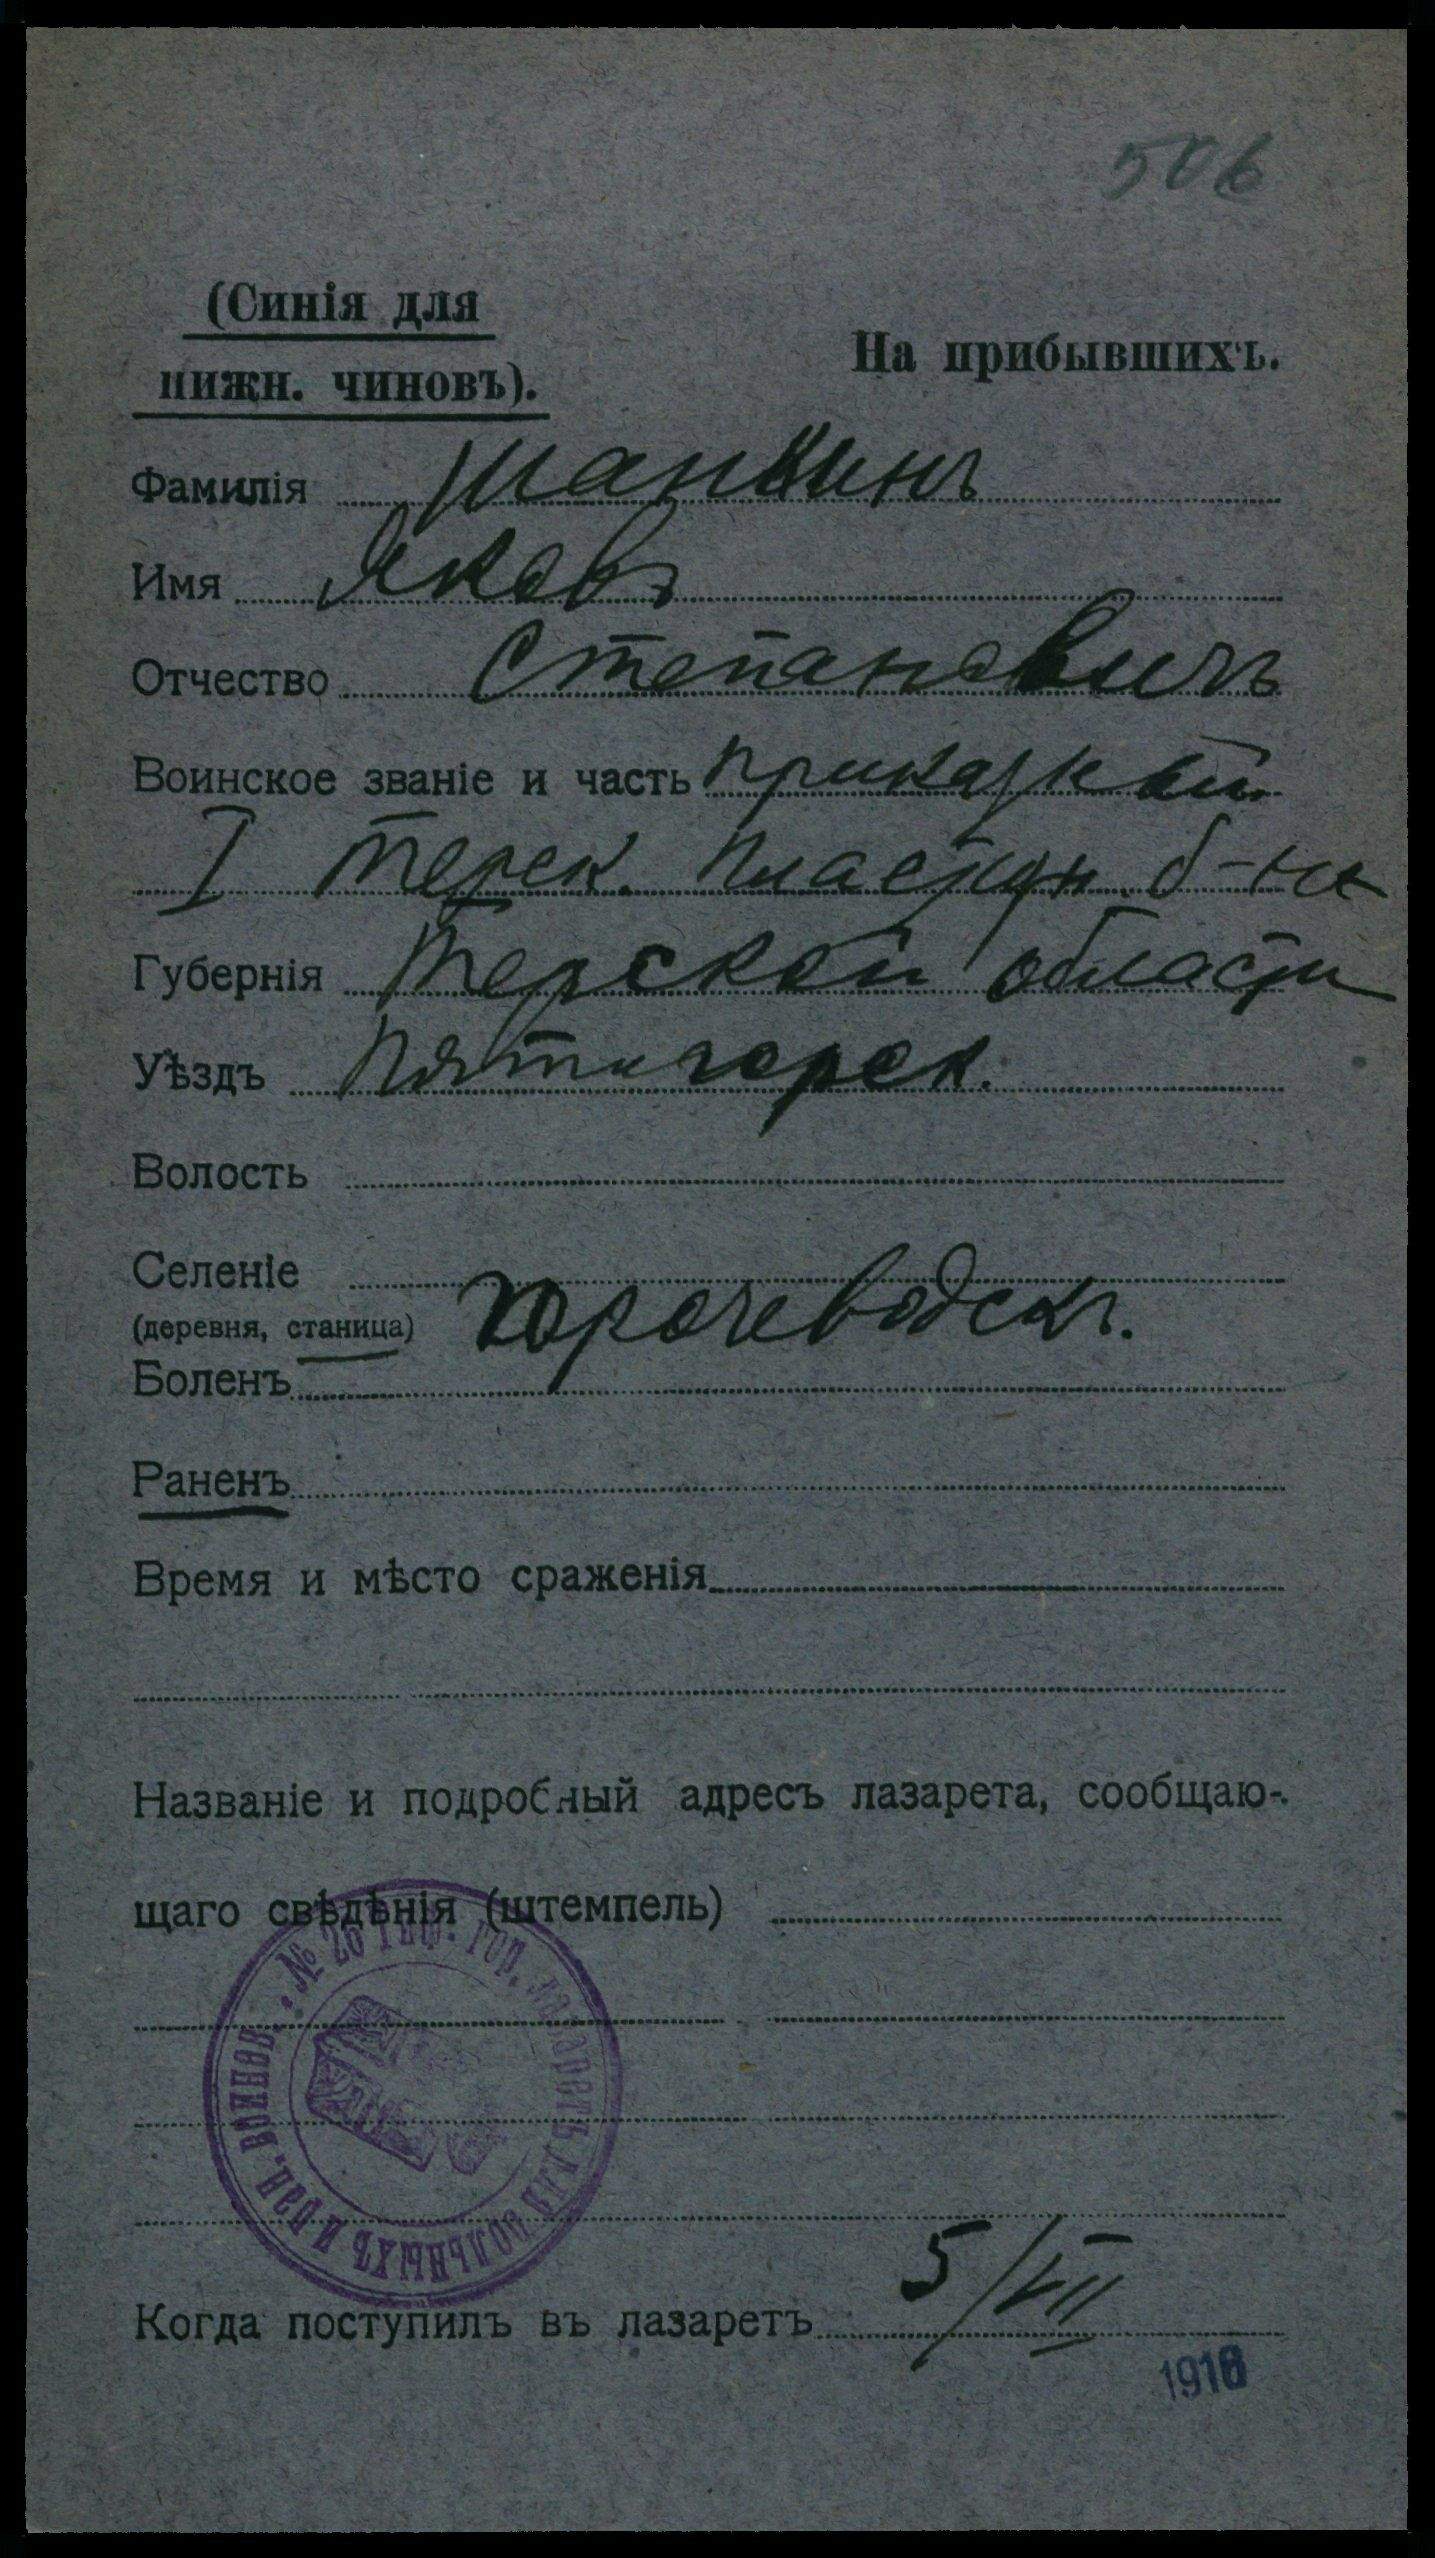 506
(Синія для
нижн. чиновъ).
На прибывшихъ.
Фамилія Шанкинъ
Имя Яковъ
Отчество Степановичъ
Воинское званіе и часть приказный
I Терек. пластун. б-на
Губернія Терской области
Уѣздъ Пятигорск.
Волость
Селеніе
(деревня, станица) Горячеводск.
Боленъ
Раненъ
Время и мѣсто сраженія
Названіе и подробный адресъ лазарета, сообщаю-
щаго свѣдѣнія (штемпель)
№ 26 Тиф. Гор. Лазаретъ для больныхъ и ран. воинов.
Когда поступилъ въ лазаретъ 5/VII
1916